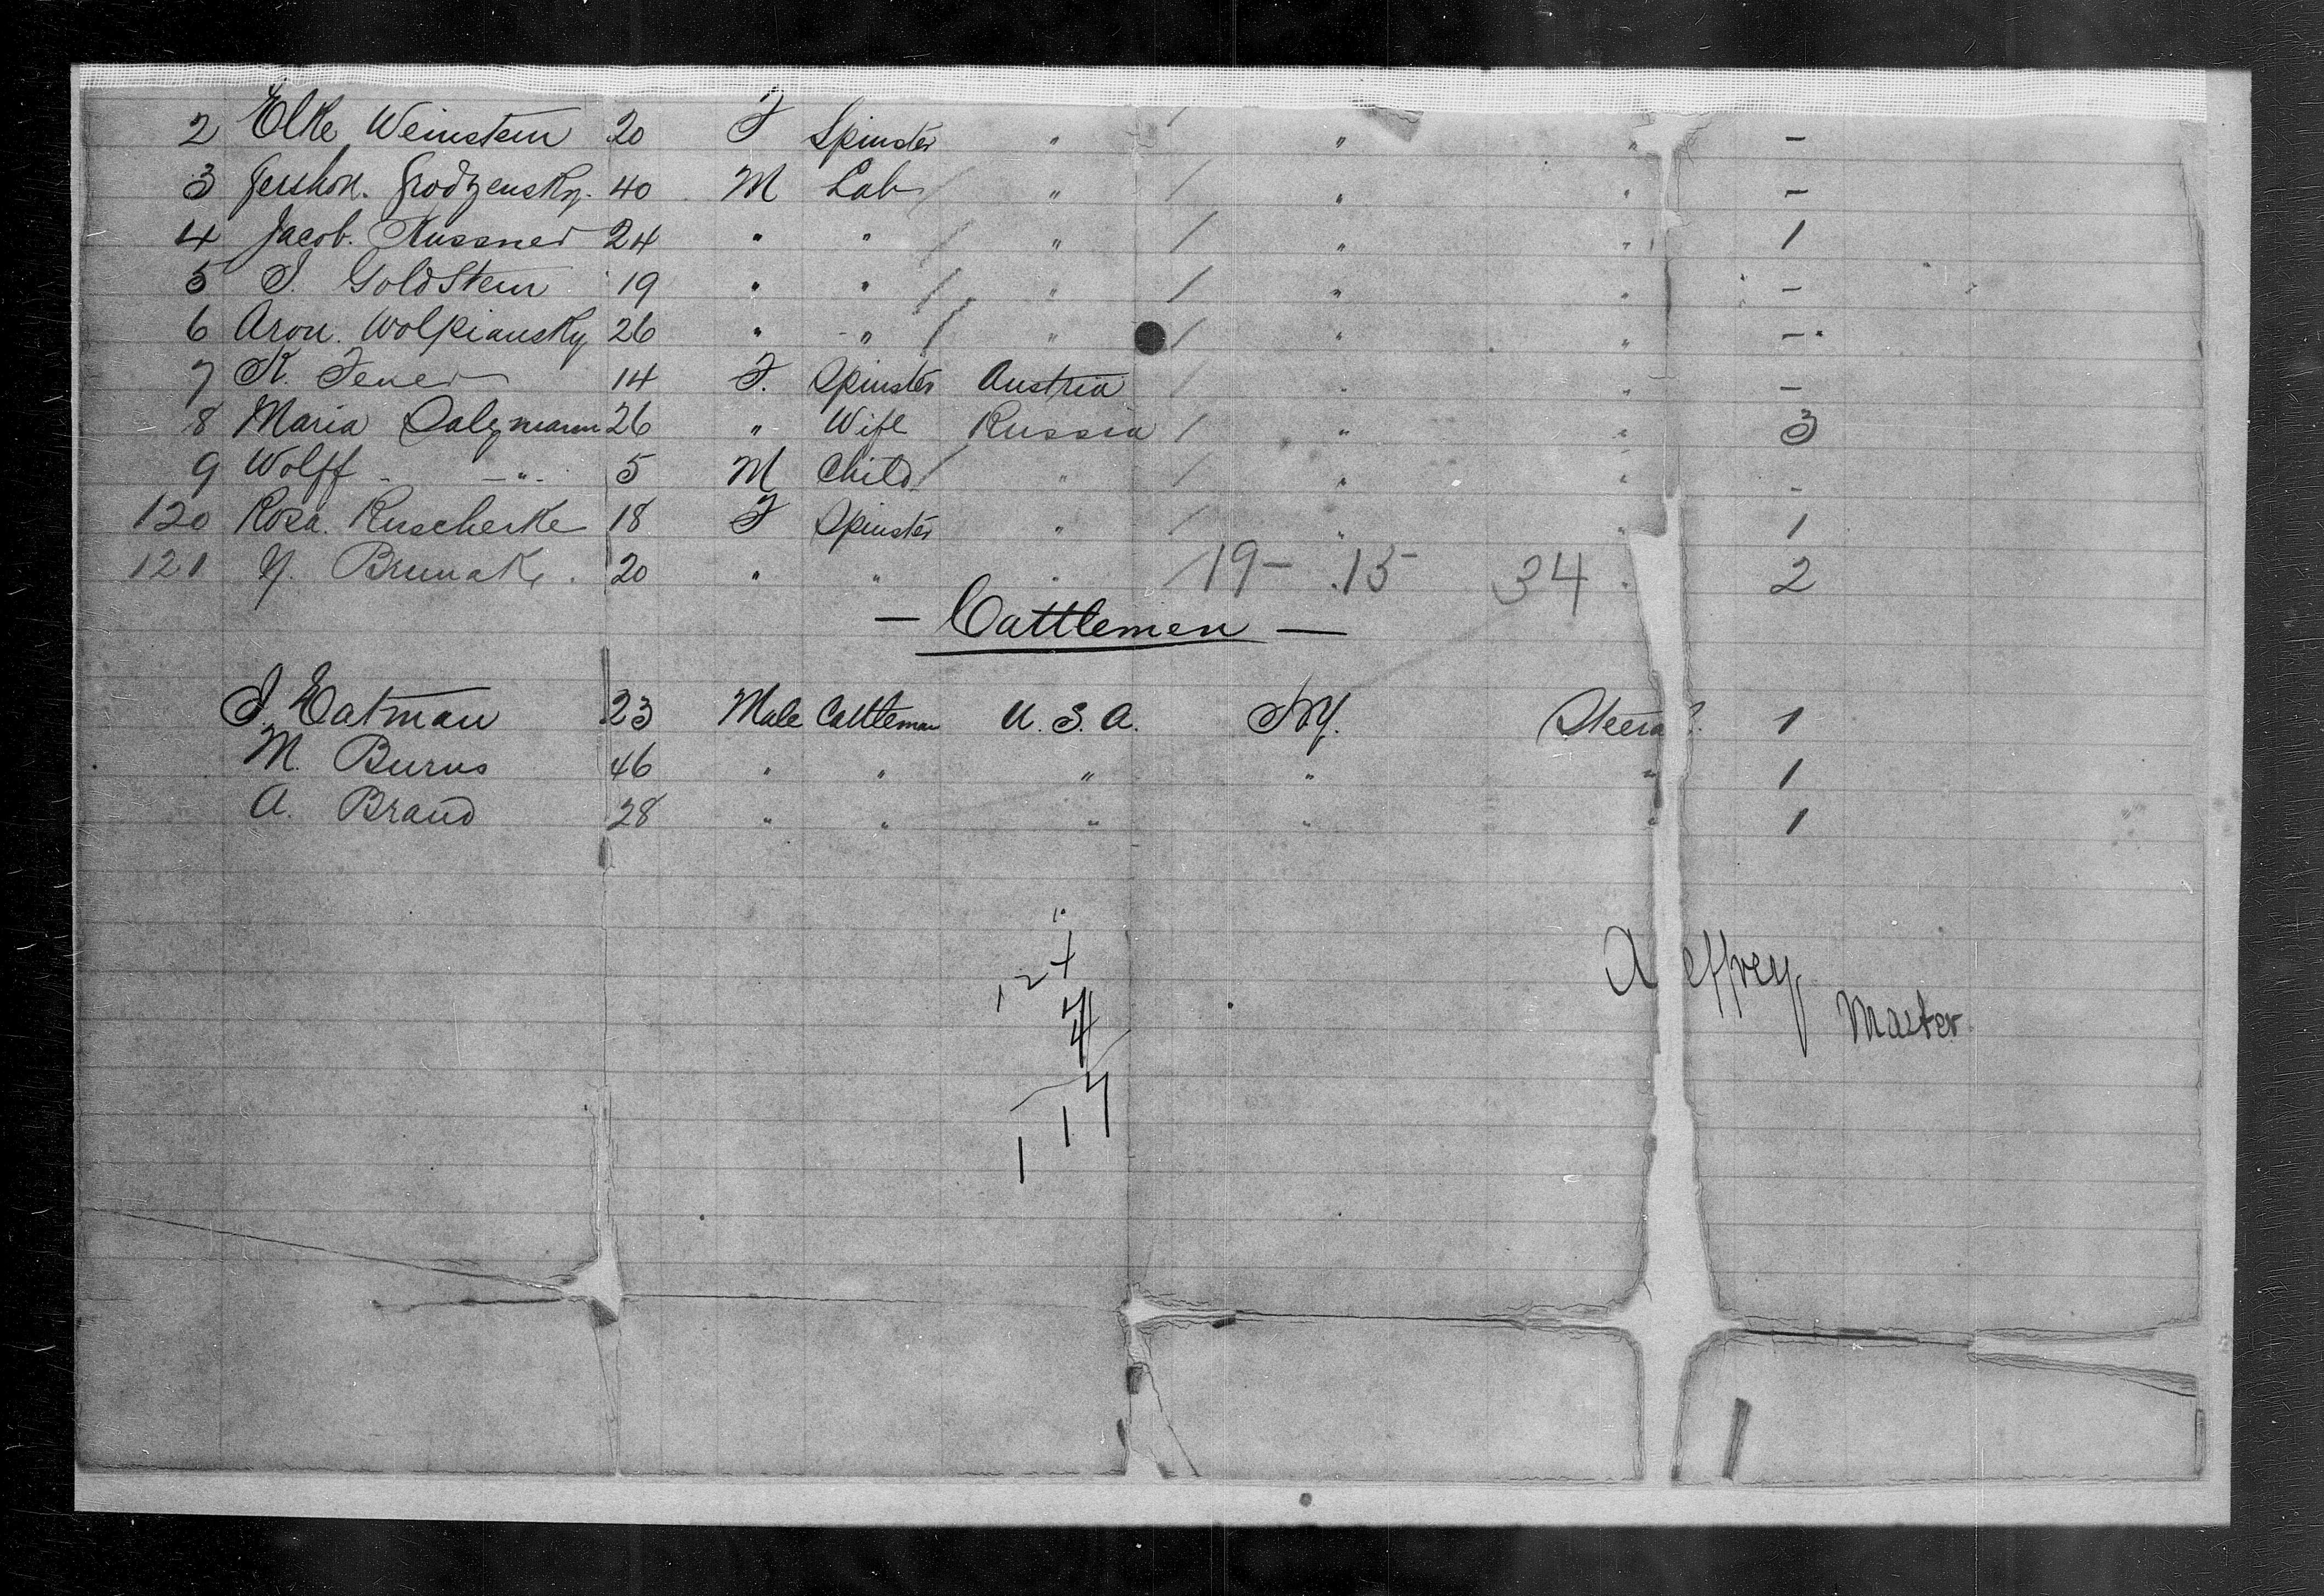 2 Elke Weinstein 20 F Spinster " " " –
3 Gershon. Grodzensky. 40 M Lab / " / " " –
4 Jacob. Kussner 24 " " / " / " " 1
5 I. Goldstein 19 " " / " / " " –
6 Aron. Wolpiansky 26 " " / " / " " –
7 K. Fener 14 F. Spinster Austria / " " –
8 Maria Salzmann 26 " Wife Russia / " " 3
9 Wolff - " - 5 M Child / " / " " -
120 Rosa. Kuscherke 18 F Spinster " / " " 1
121 Y. Brunak 20 " " " / 19 – 15 34 " 2
— Cattlemen —
I. Eatman 23 Male Cattleman U.S.A. N.Y. Steera 1
M. Burns 46 " " " " " 1
A. Brand 28 " " " " " 1
A effrey
Master
121
4
117